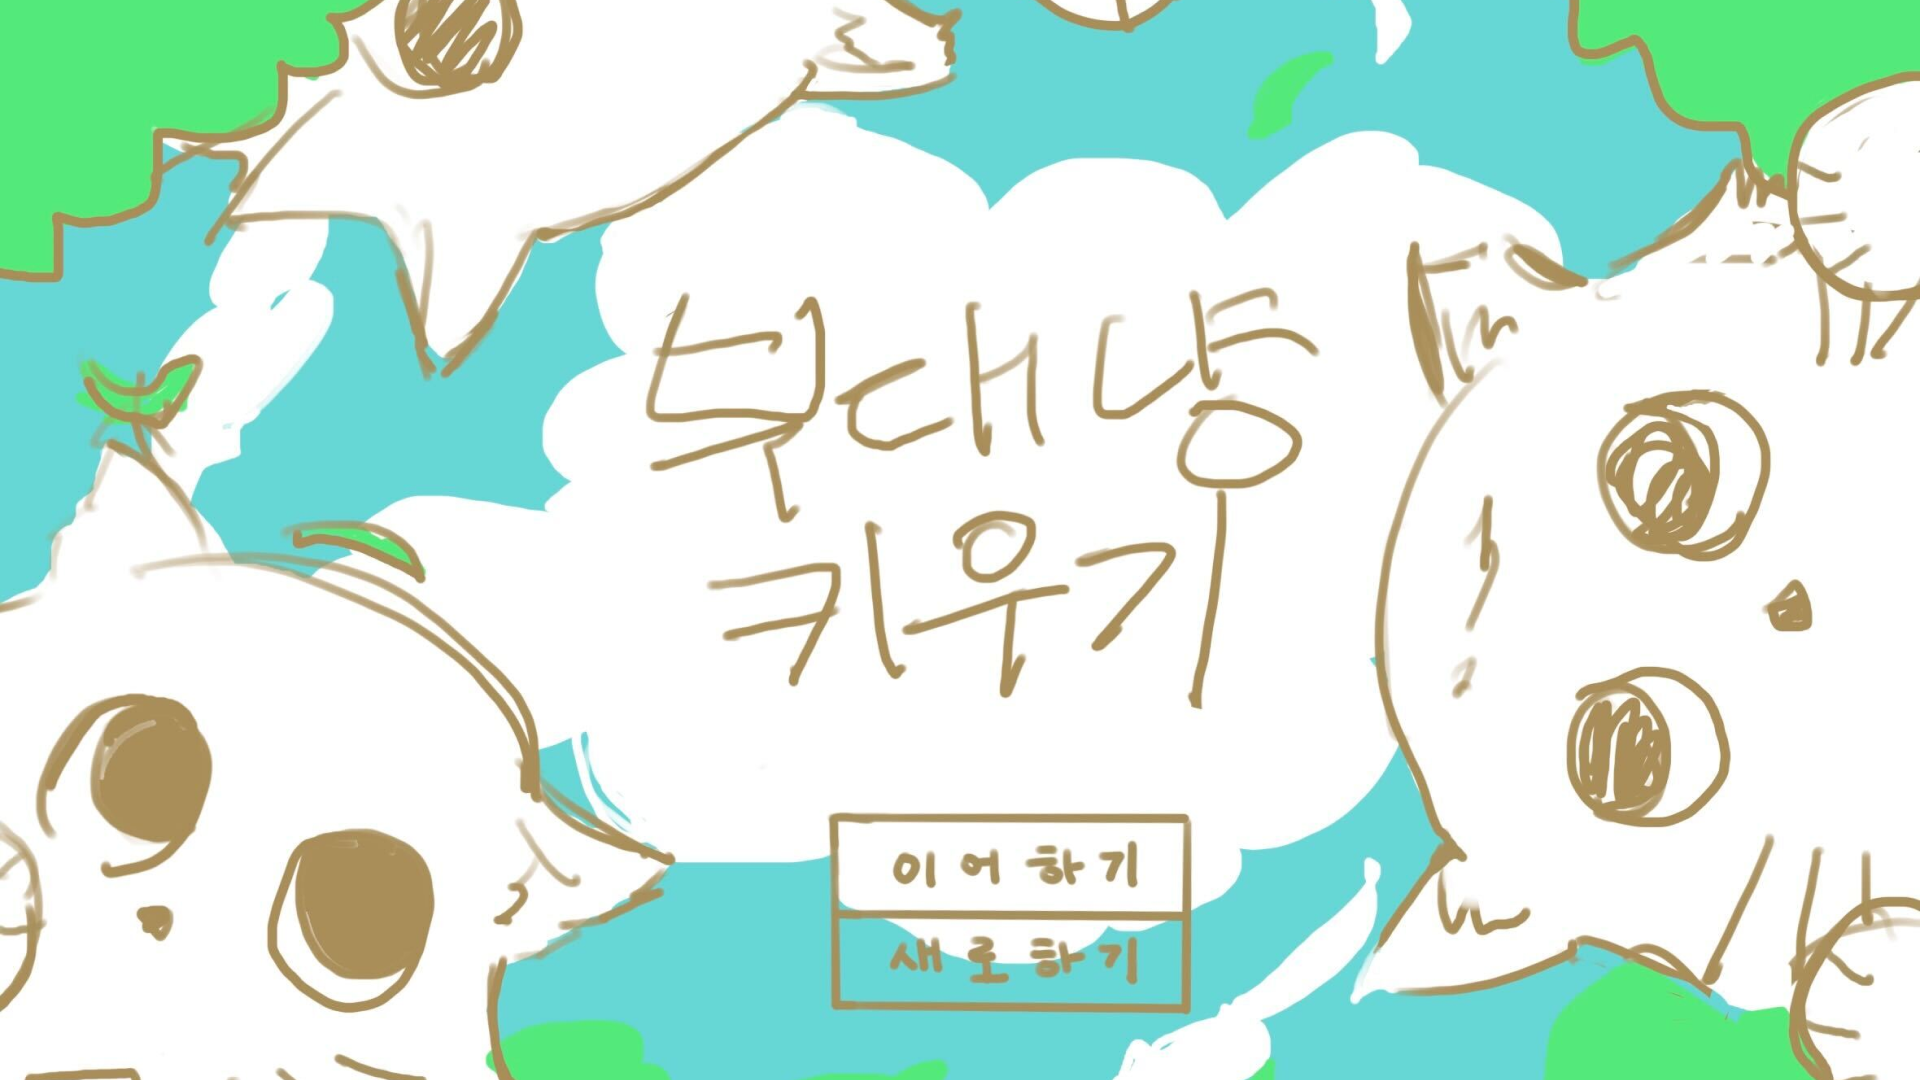 부대냥
키우기
이어하기
새로하기